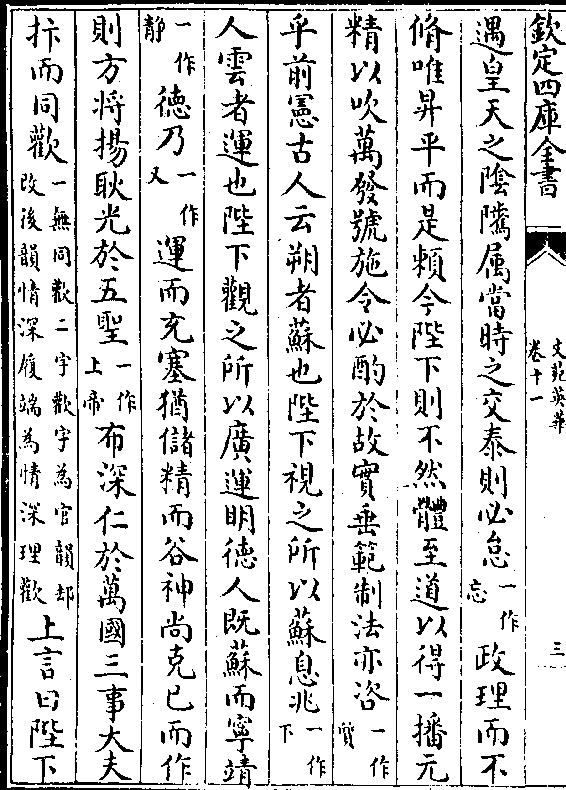 欽定四庫全書
文苑英華
卷十一
三
遇皇天之陰隲屬當時之交泰則必怠一作忘政理而不
脩唯昇平而是頼今陛下則不然體至道以得一播元
精以吹萬發號施令必酌於故實垂範制法亦咨一作質
乎前憲古人云朔者蘇也陛下視之所以蘇息兆一作下
人雲者運也陛下觀之所以廣運明徳人既蘇而寧靖
一作静徳乃一作又運而充塞猶儲精而谷神尚克已而作
則方将揚耿光於五聖一作上帝布深仁於萬國三事大夫
抃而同歡一無同歡二字歡字為官韻却改後韻情深履端為情深理歡上言曰陛下